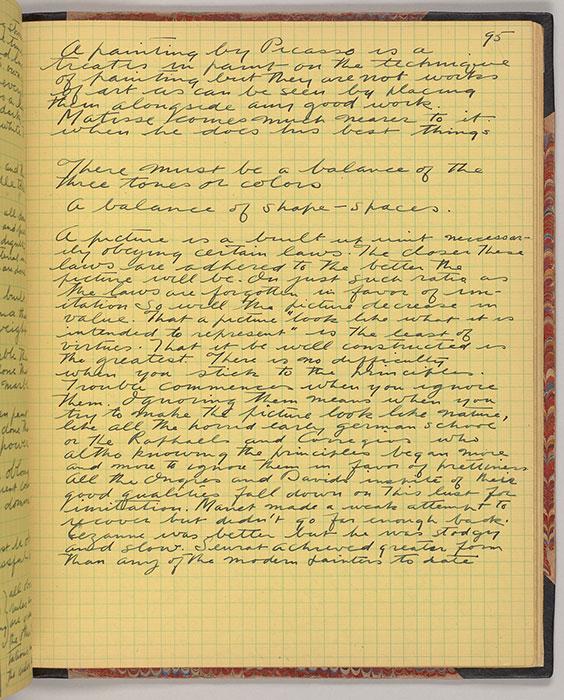 95
A painting by Picasso is a
treatis in paint on the technique
of painting but they are not works
of art as can be seen by placing
them alongside any good work.
Matisse comes much nearer to it
when he does his best things
There must be a balance of the
three tones or colors
A balance of shape-spaces.
A picture is a built up unit necessar-
ily obeying certain laws. The closer these
laws are adhered to the better the
picture will be. In just such ratio as
the laws are forgotten in favor of im-
itation so will the picture decrease in
value. That a picture "look like what it is
intended to represent" is the least of
virtues. That it be well constructed is
the greatest. There is no difficulty
when you stick to the principles.
Trouble commences when you ignore
them. Ignoring them means when you
try to make the picture look like nature,
like all the horrid early german school
or the Raphaels and Corregios who
altho knowing the principles began more
and more to ignore them in favor of prettiness
all the Ingres and Davids inspite of their
good qualities fall down on this lust for
imitation. Manet made a weak attempt to
recover but didn't go far enough back.
Cezanne was better but he was stodgy
and slow. Seurat achieved greater form
than any of the modern painters to date